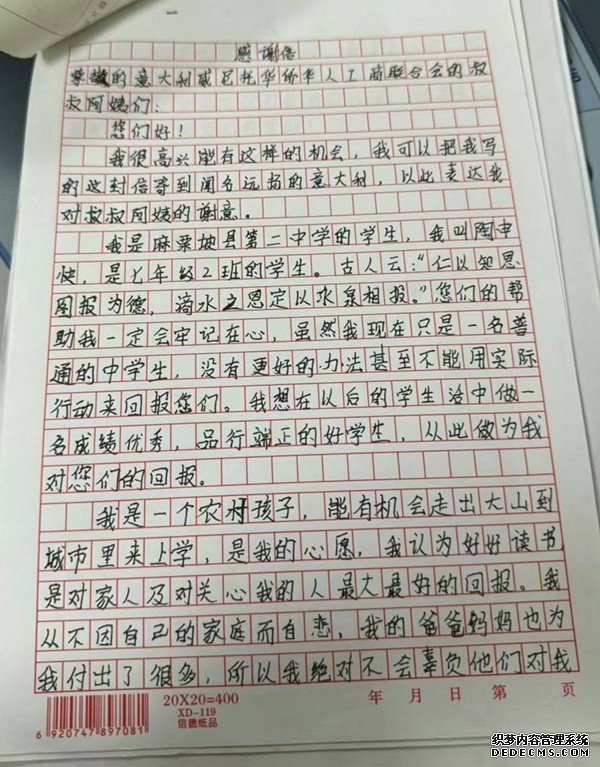 感谢信
尊敬的意大利威尼托华侨华人工商联合会的叔
叔阿姨们：
您们好！
我很高兴能有这样的机会，我可以把我写
的这封信寄到闻名远扬的意大利，以此表达我
对叔叔阿姨的谢意。
我是麻栗坡县第二中学的学生，我叫陶申
快，是七年级2班的学生。古人云：“仁以知恩
图报为德，滴水之恩定以水泉相报。”您们的帮
助我一定会牢记在心，虽然我现在只是一名普
通的中学生，没有更好的办法甚至不能用实际
行动来回报您们。我想在以后的学生活中做一
名成绩优秀，品行端正的好学生，从此做为我
对您们的回报。
我是一个农村孩子，能有机会走出大山到
城市里来上学，是我的心愿，我认为好好读书，
是对家人及对关心我的人最大最好的回报。我
从不因自己的家庭而自悲，我的爸爸妈妈也为
我付出了很多，所以我绝对不会辜负他们对我
20X20=400
年 月 日 第 页
XD-119
信德纸品
6 920747 897081
织梦内容管理系统
DEDECMS.COM